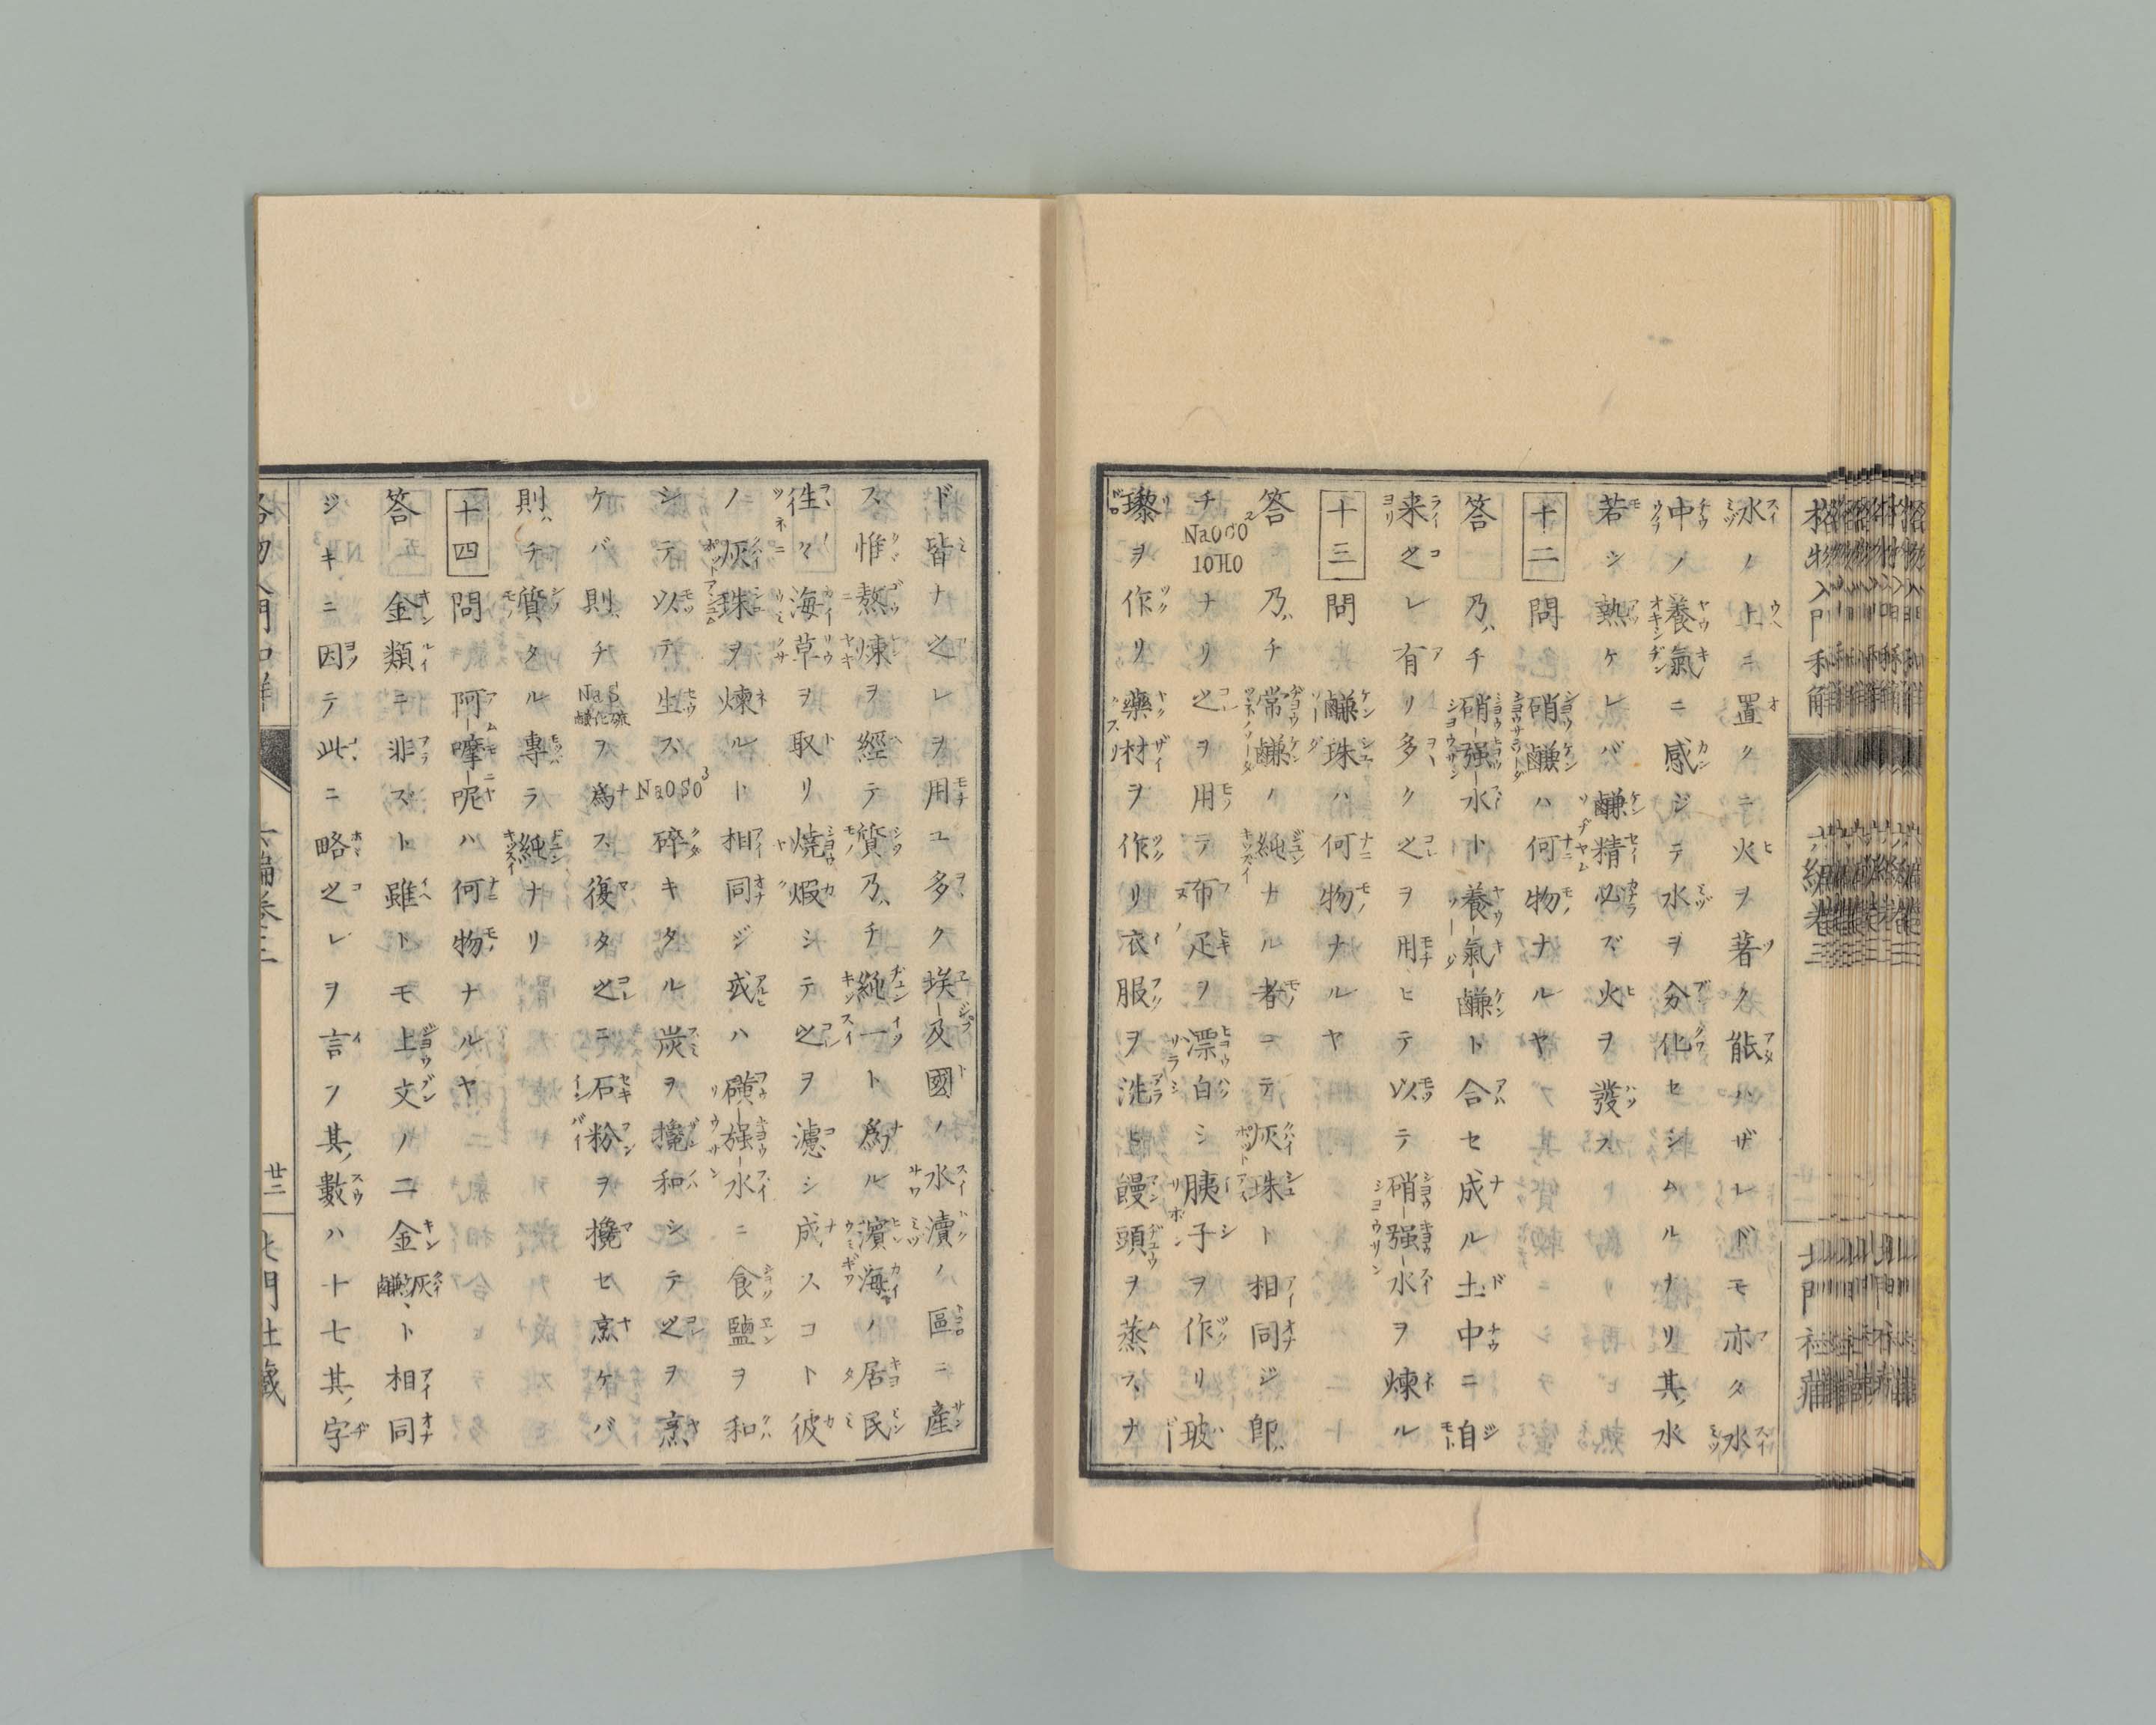 水ノ上ニ置クニ火ヲ著ク能ハザレドモ亦タ水
中ノ養氣ニ感ジテ水ヲ分化セシムルナリ其水
若シ熱ケレバ鹻精必ズ火ヲ發ス
十二問 硝鹻ハ何物ナルヤ
答 乃チ硝强水ト養氣鹻ト合セ成ル土中ニ自
来之レ有リ多ク之ヲ用ヒテ以テ硝强水ヲ煉ル
十三問 鹻珠ハ何物ナルヤ
答 乃チ常鹻ノ純ナル者ニテ灰珠ト相同ジ卽
チNaOCO2 10HOナリ之ヲ用テ布疋ヲ漂白シ胰子ヲ作リ玻
瓈ヲ作リ藥材ヲ作リ衣服ヲ洗ヒ饅頭ヲ蒸ス、ナ
ド皆ナ之レヲ用ユ多ク埃及國ノ水瀆ノ區ニ產
ス惟熬煉ヲ經テ質乃チ純一ト爲ル濱海ノ居民
徃々海草ヲ取リ燒煆シテ之ヲ濾シ成スコト彼
ノ灰珠ヲ煉ルト相同ジ或ハ磺强水ニ食鹽ヲ和
シテ以テ生ズNaOSO3碎キタル炭ヲ攙和シテ之ヲ烹
ケバ則チNaS鹻化硫ヲ爲ス復タ之ニ石粉ヲ攙セ烹ケバ
則チ質タル專ラ純ナリ
十四問 阿嚤呢ハ何物ナルヤ
答 金類ニ非ズト雖トモ上文ノ二金灰鹻、ト相同
ジキニ因テ此ニ略之レヲ言フ其數ハ十七其字
格物入門和解 六編卷三 廿二 北門社藏